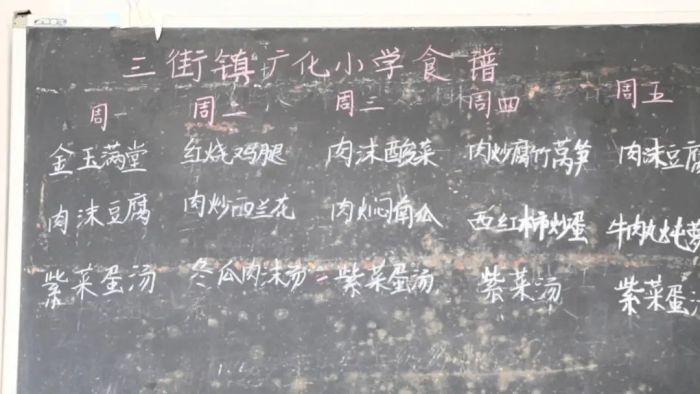 三街镇广化小学食谱
周一 周二 周三 周四 周五
金玉满堂 红烧鸡腿 肉沫酸菜 肉炒腐竹莴笋 肉沫豆腐
肉沫豆腐 肉炒西兰花 肉焖南瓜 西红柿炒蛋 牛肉丸炖萝
紫菜蛋汤 冬瓜肉沫汤 紫菜蛋汤 紫菜汤 紫菜蛋汤